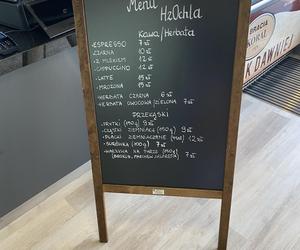 Menu
H2Ochla
Kawa/Herbata
-ESPRESSO 7 zł
-CZARNA 10 zł
-Z MLEKIEM 12 zł
-CAPPUCCINO 12 zł
-LATTE 15 zł
-MROŻONA 15 zł
-HERBATA CZARNA 6 zł
-HERBATA OWOCOWA/ZIELONA 7 zł
PRZEKĄSKI
-FRYTKI (150g) 9 zł
-CZĄSTKI ZIEMNIACZANE (150g) 9 zł
-PLACKI ZIEMNIACZANE 12 zł
-SURÓWKA (100g) 7 zł
-WARZYWA NA PARZE (150g) 7 zł
(BROKUŁ, MARCHEW, KALAFIOR)
GRACIA
KORAL
K DAWNIEJ